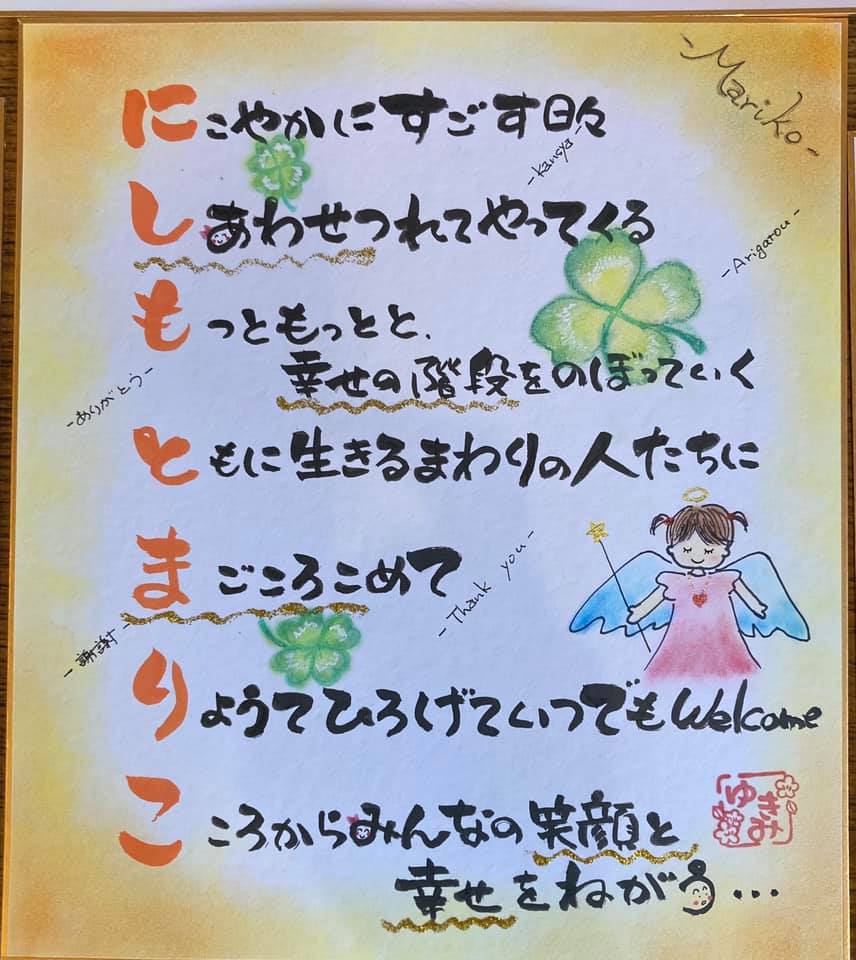 -Mariko-
にこやかにすごす日々
-kansya-
しあわせつれてやってくる
-Arigatou-
もっともっとと、
幸せの階段をのぼっていく
-ありがとう-
ともに生きるまわりの人たちに
まごころこめて
-Thank you-
-謝謝-
りょうてひろげていつでもWelcome
こころからみんなの笑顔と
幸せをねがう...
ゆきみ